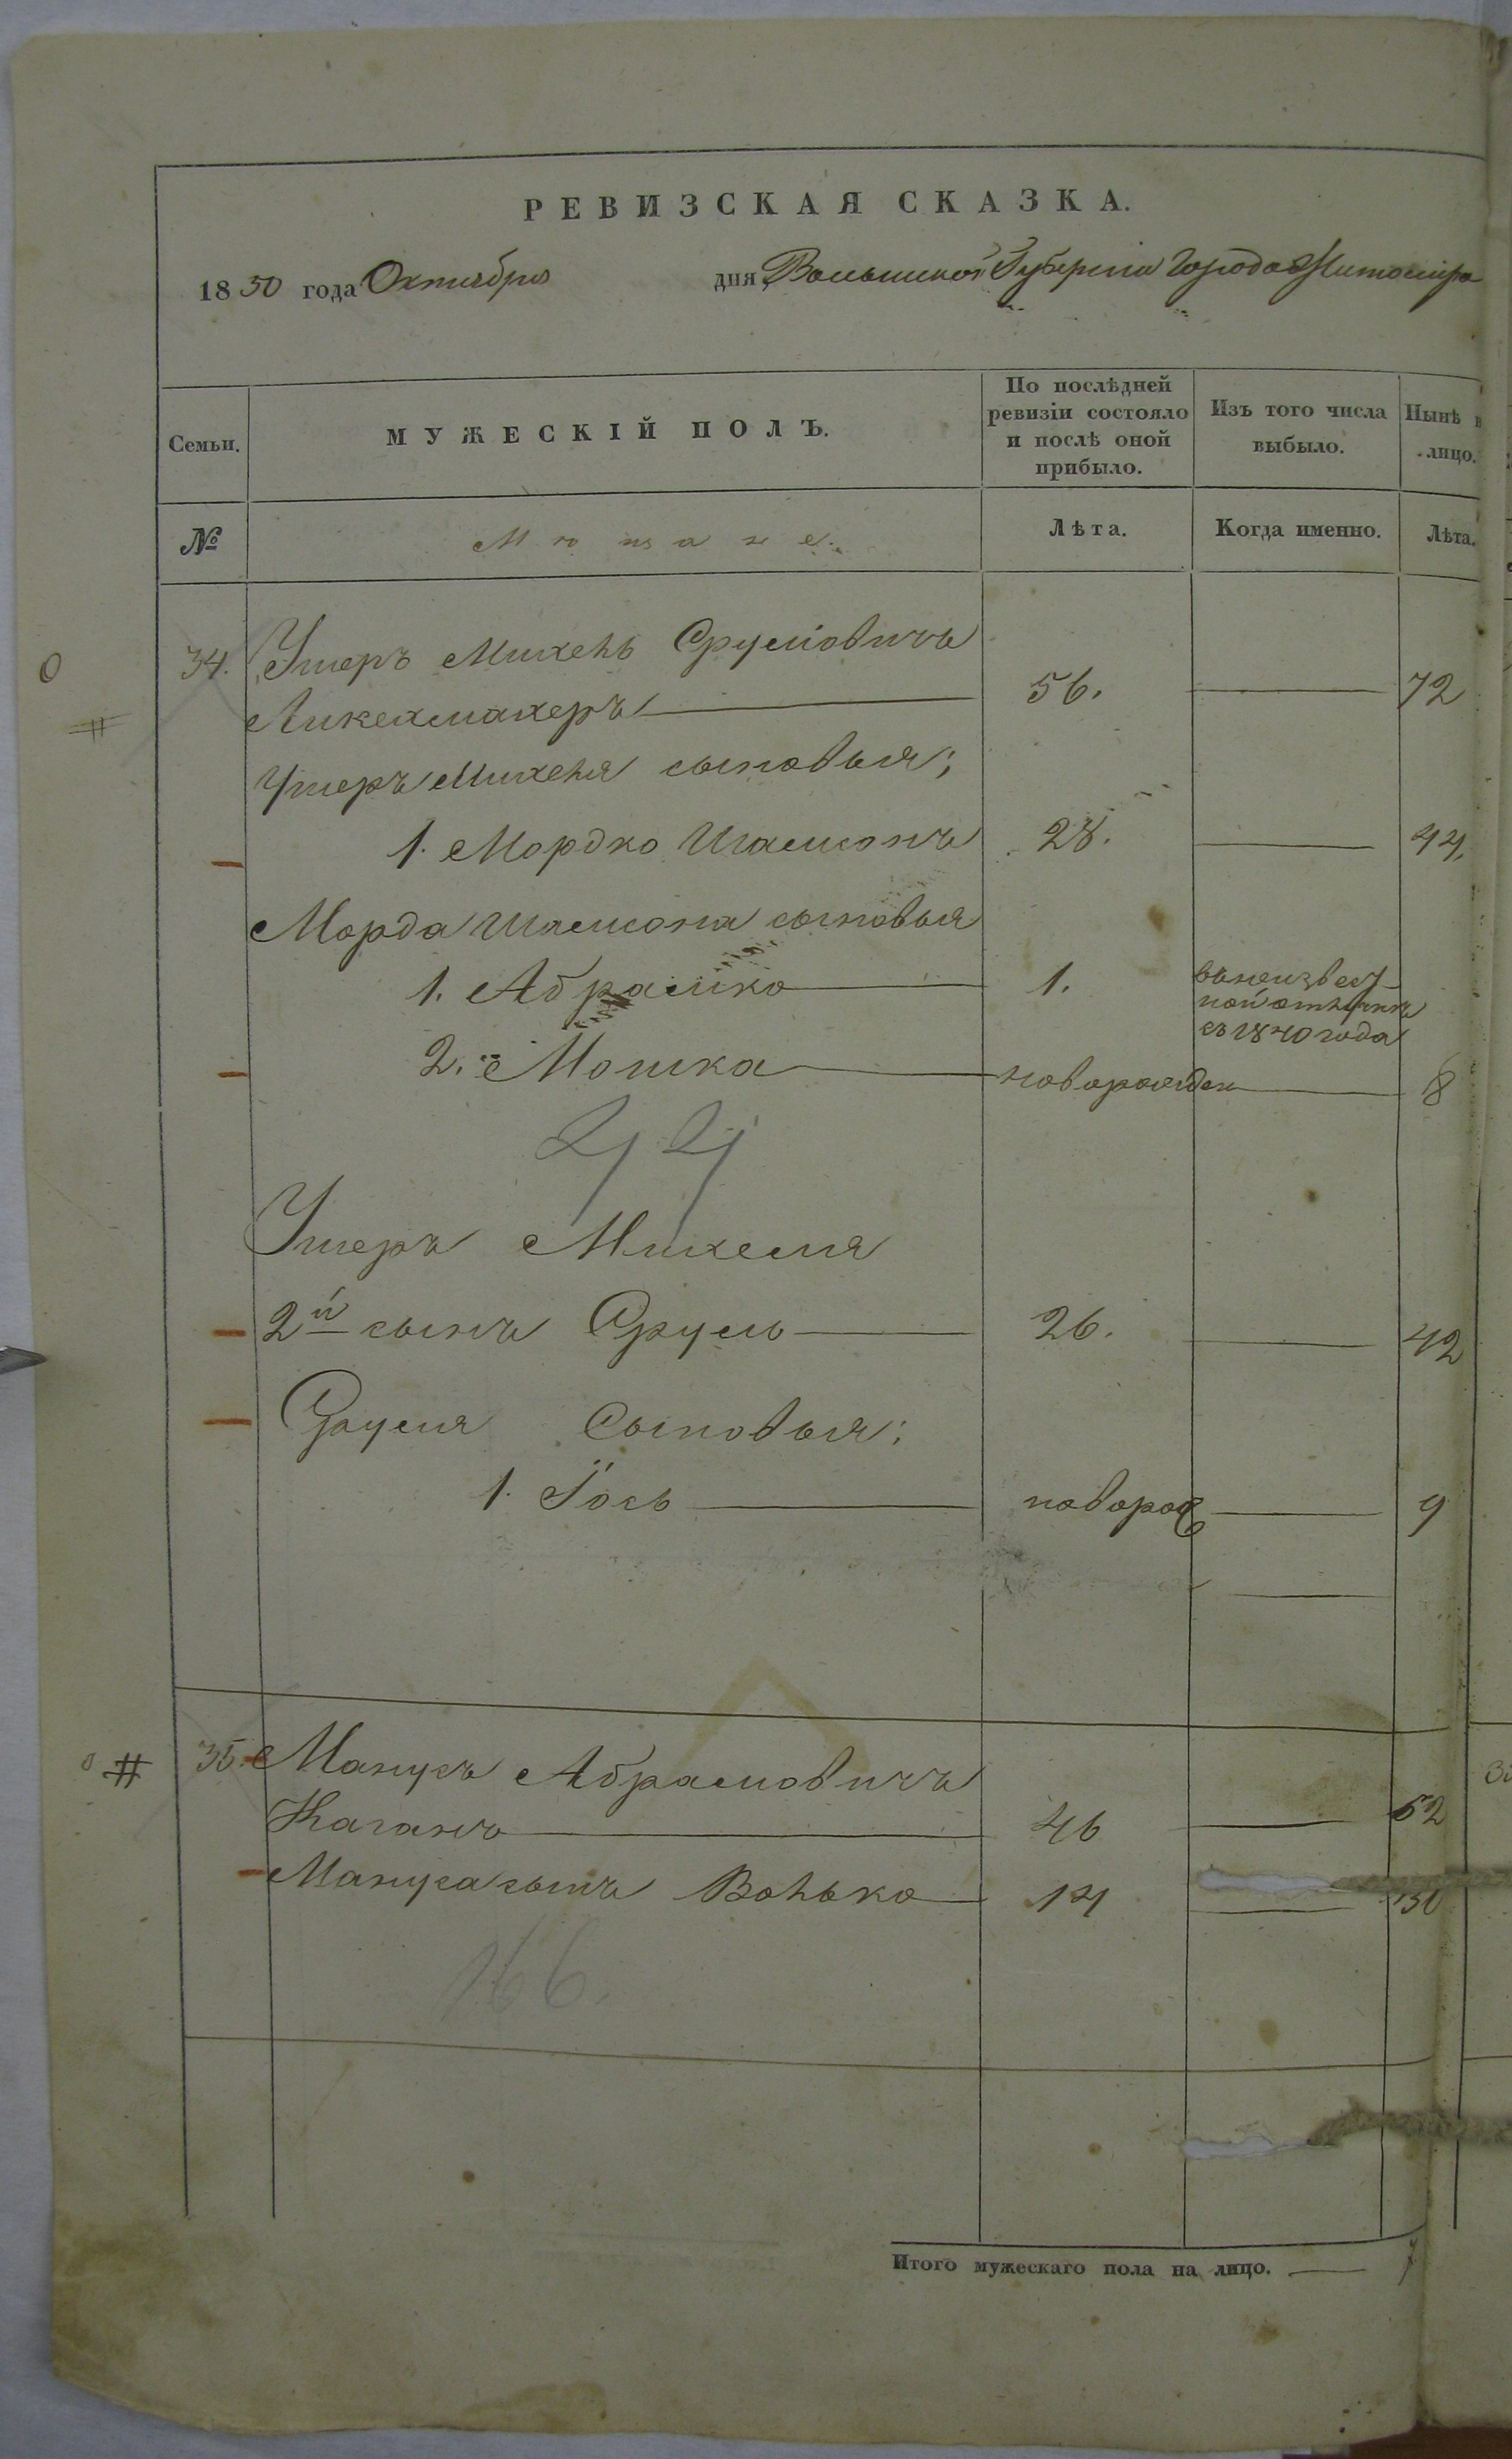 РЕВИЗСКАЯ СКАЗКА.
1850 года Октября дня Волынской Губернiи Города Житомира
Семьи.
МУЖЕСКІЙ ПОЛЪ.
По послѣдней ревизіи состояло и послѣ оной прибыло.
Изъ того числа выбыло.
Нынѣ в лицо.
№
Мѣщане.
Лѣта.
Когда именно.
Лѣта.
34. Ушеръ Михель Сруліовичъ
Ликехмахеръ 56. 72
Ушеръ Михеля сыновья;
1. Мордко Шамшонъ 28. 44.
Морда Шамшона сыновья
1. Абрамко 1. въ неизвест
ной отлучкѣ
съ 1840 года
2. Мошка новорожден 8
44
Ушеръ Михеля
2й сынъ Сруль 26. 42
Сруля Сыновья:
1. Іось новорож 9
35. Манусъ Абрамовичъ
Каганъ 46 62
Мануса сынъ Волько 14 30
166.
Итого мужескаго пола на лицо. 7